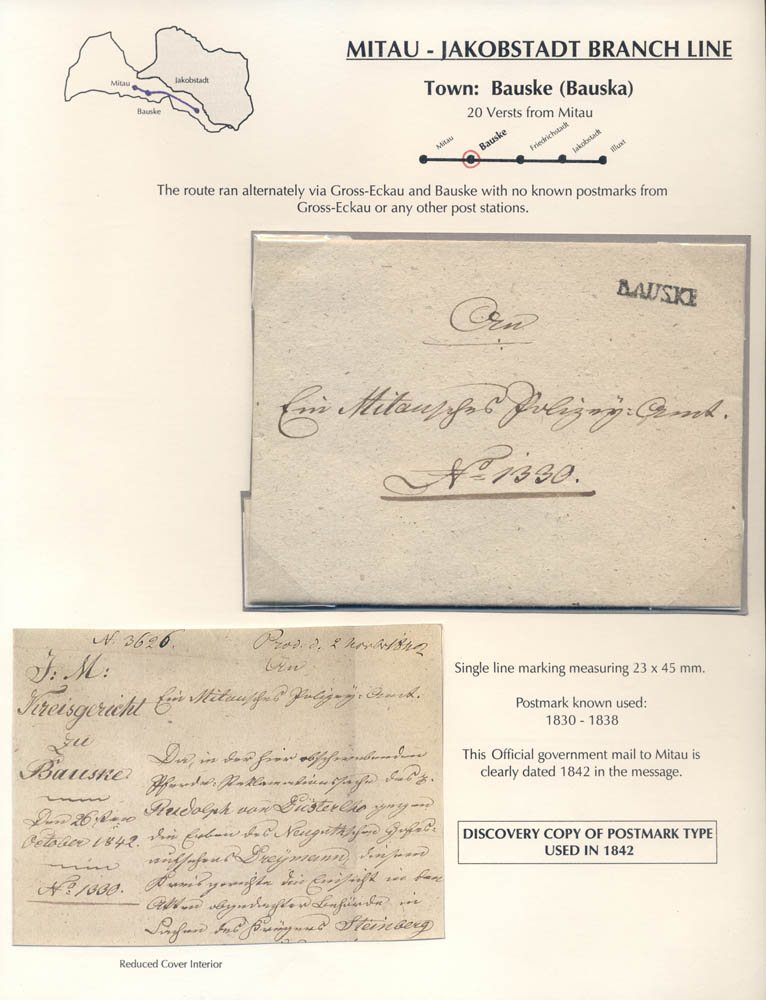 MITAU - JAKOBSTADT BRANCH LINE
Town: Bauske (Bauska)
20 Versts from Mitau
Mitau
Jakobstadt
Bauske
Mitau
Bauske
Friedrichstadt
Jakobstadt
Illuxt
The route ran alternately via Gross-Eckau and Bauske with no known postmarks from
Gross-Eckau or any other post stations.
BAUSKE
An
Ein Mitausches Polizey-Amt.
No 1330.
N. 3626.
Prod. d. 2 1842
An
J: M:
Kreisgericht
Ein Mitausches Polizey-Amt.
zu
Bauske
Da, in der hier
des
Rudolph von gegen
Den 26sten
October 1842.
die Erben des
No 1330.
Kreisgerichte die Einsicht in den
Acten Behörde in
Sachen des Krügers Steinberg
Single line marking measuring 23 x 45 mm.
Postmark known used:
1830 - 1838
This Official government mail to Mitau is
clearly dated 1842 in the message.
DISCOVERY COPY OF POSTMARK TYPE
USED IN 1842
Reduced Cover Interior